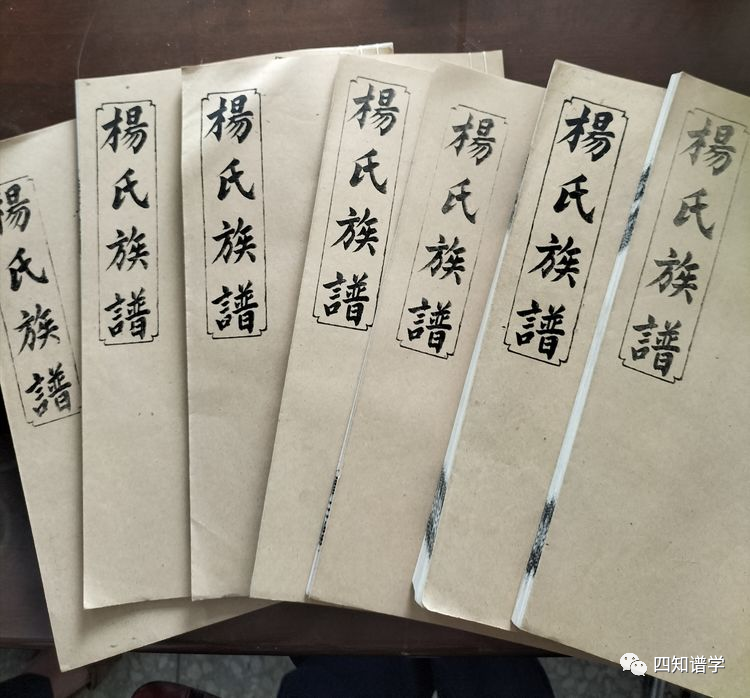 楊氏族譜
楊氏族譜
楊氏族譜
楊氏族譜
楊氏族譜
楊氏族譜
楊氏族譜
四知谱学